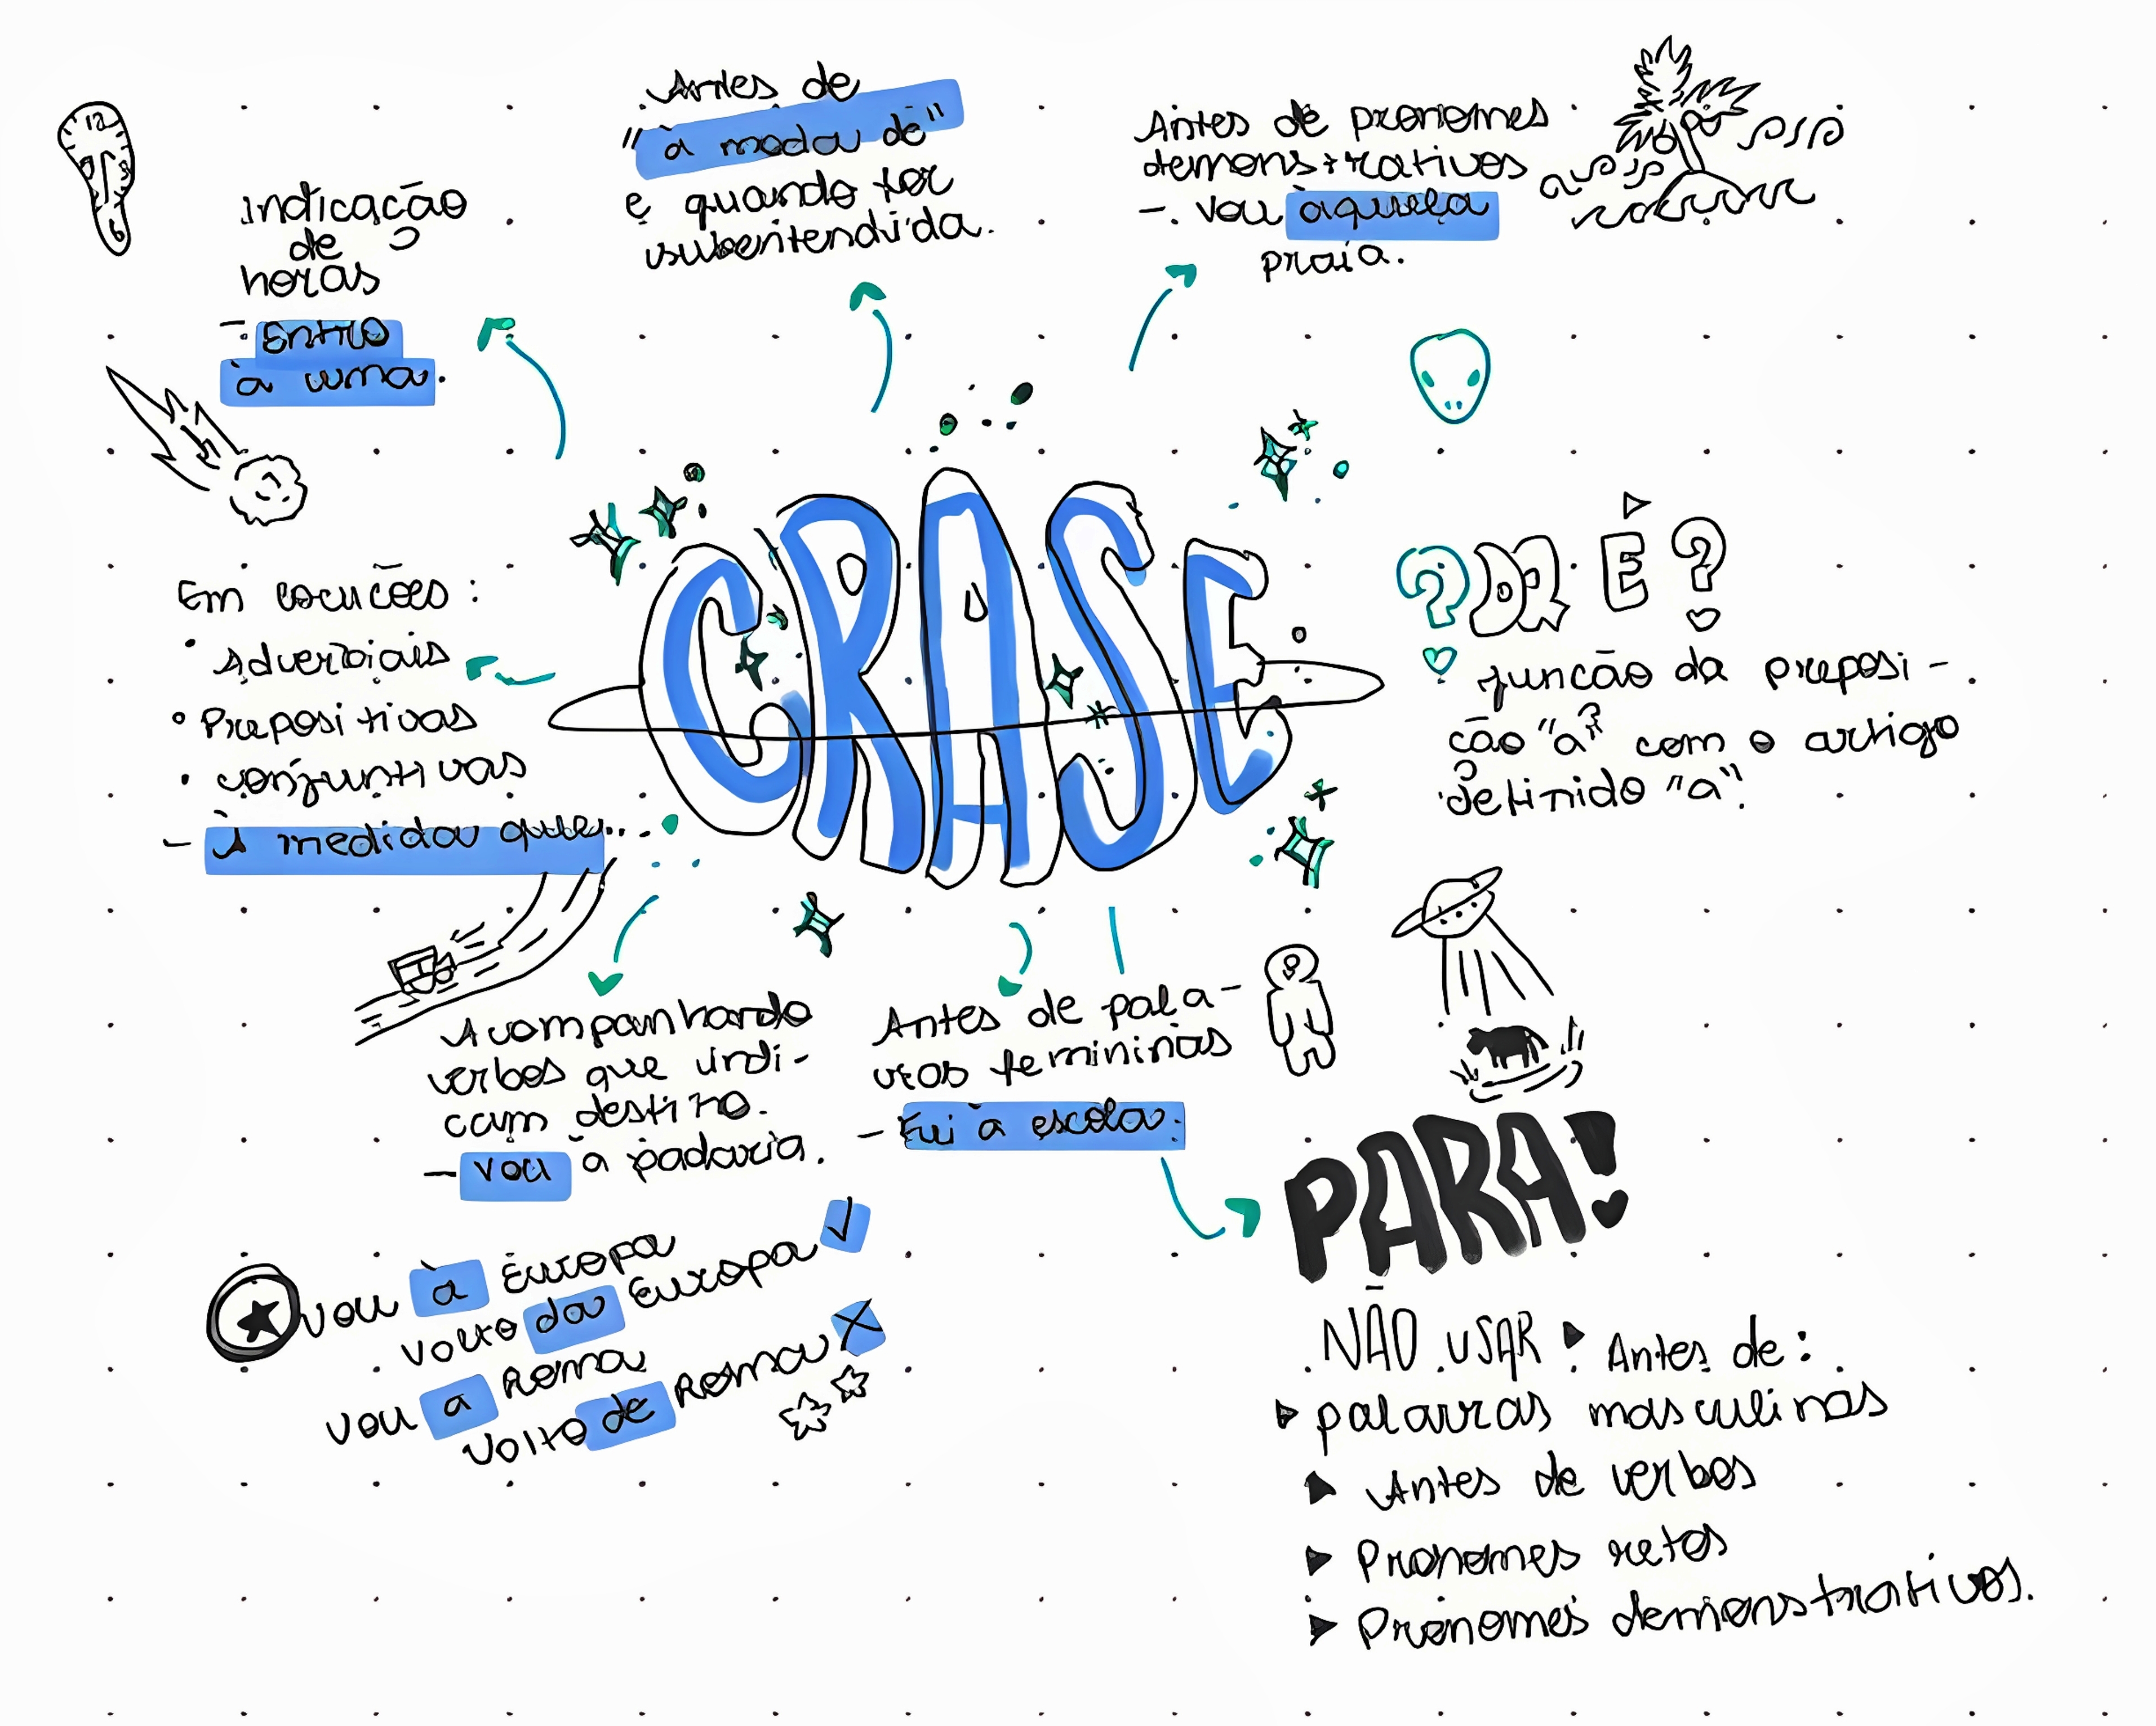 Indicação
de
horas
- Entro
à uma.
Antes de
"à moda de"
e quando for
subentendida.
Antes de pronomes
demonstrativos
- Vou àquela
praia.
Em locuções:
• Adverbiais
• Prepositivas
• conjuntivas
- À medida que...
CRASE
? QR É?
junção da preposi-
ção "a" com o artigo
definido "a".
Acompanhando
verbos que indi-
cam destino.
- Vou à padaria.
Antes de pala-
vras femininas
- Fui à escola.
Vou à Europa
volto da Europa ✓
Vou a Roma
Volto de Roma X
PARA!
NÃO USAR ▸ Antes de:
▸ palavras masculinas
▸ Antes de verbos
▸ Pronomes retos
▸ Pronomes demonstrativos.
12
6